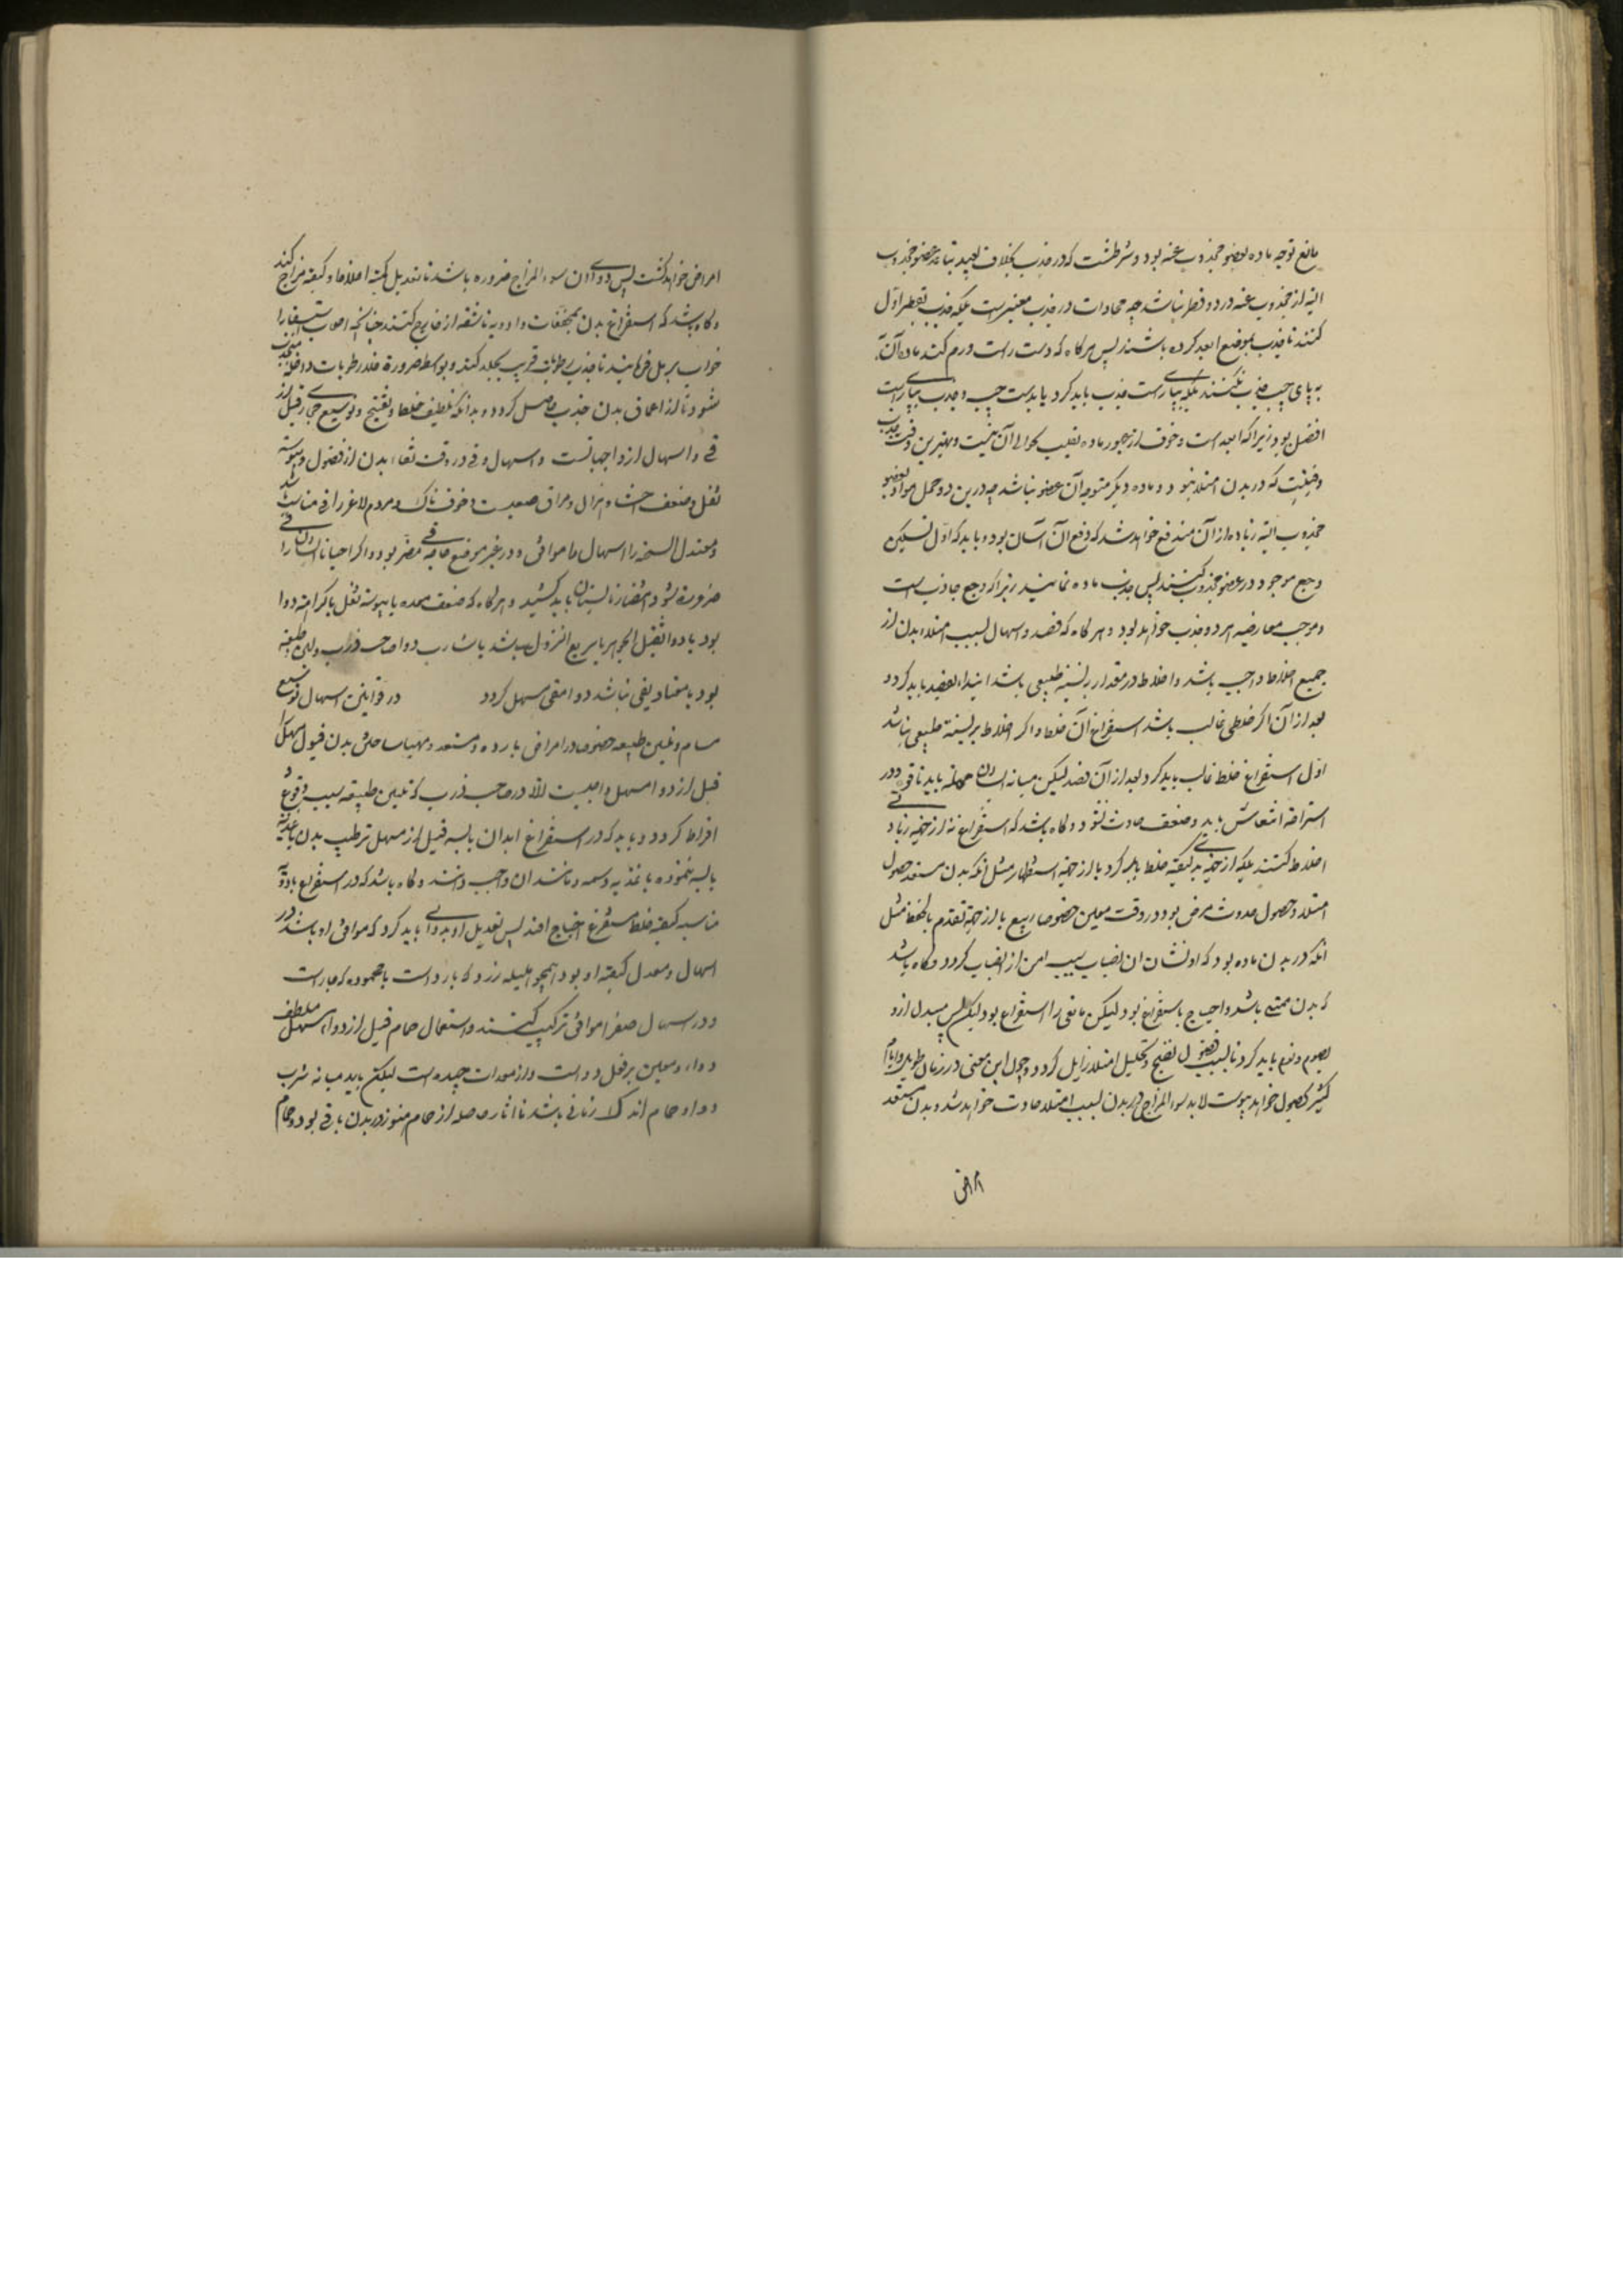 مانع توجه ماده بعضو مجذوب عنه بود و شرطست که در جذب بخلاف بعید بتباعد عضو مجذوب
الیه از مجذوب عنه در دو قطر نباشد چه محاذات در جذب معتبرست بلکه جذب بقطر اول
کنند تا جذب بموضع ابعد کرده باشند پس هرگاه که دست راست ورم کند ماده آن
به پای چپ جذب نکنند بلکه بپای راست جذب باید کرد یا بدست چپ و جذب بپای راست
افضل بود زیرا که ابعد است و خوف از عبور ماده بقلب و حوالی آن نیست و بهترین وقت جذب
وقتیست که در بدن امتلا نبود و ماده دیگر متوجه آن عضو نباشد چه درین دو حمل مواد بعضو
مجذوب الیه زیاده از آن مندفع خواهد شد که دفع آن آسان بود و باید که اول تسکین
وجع موجود در عضو مجذوب کنند پس جذب ماده نمایند زیرا که وجع جاذب است
و موجب معارضه هر دو جذب خواهد بود و هرگاه که فصد و اسهال بسبب امتلاء بدن از
جمیع اخلاط واجب باشد و اخلاط در مقدار بر نسبة طبیعی باشد ابتداء بفصد باید کرد و
بعد از آن اگر خلطی غالب باشد استفراغ آن خلط و اگر اخلاط بر نسبة طبیعی نباشد
اول استفراغ خلط غالب باید کرد و بعد از آن فصد لیکن میانه ایشان مهلة باید تا قوة در
استراحة انتعاش یابد و ضعف حادث نشود و گاه باشد که استفراغ نه از جهة زیادتی
اخلاط کنند بلکه از جهة بدی کیفیة خلط باید کرد یا از جهة استظهار مثل آنکه بدن مستعد حصول
امتلا و حصول حدوث مرض بود در وقت معین خصوصا ربیع یا از جهة تقدم بالحفظ مثل
آنکه در بدن ماده بود که او نشان انصباب بسبب امن از انصباب گردد و گاه باشد
که بدن ممتلی باشد و احتیاج باستفراغ بود لیکن مانعی را استفراغ بود لیکن پس مبدل ازو
بصوم و نوم باید کرد تا بسبب فضول نضج و تحلیل امتلا زایل گردد و چون این معنی در زمان طویل و ایام
کثیر بحصول خواهد پیوست لابد سوء المزاج در بدن بسبب امتلا حادث خواهد شد و بدن مستعد
امراض
امراض خواهد گشت پس مداوای آن سوء المزاج ضروره باشد تا تعدیل کمیة اخلاط و کیفیة مزاج کند
و گاه باشد که استفراغ بدن بمجففات و ادویه ناشفه از خارج کنند چنانچه اصحاب استسقا را
خواب بر رمل فرمایند تا جذب رطوبات قریب بجلد کند و بواسطه ضرورة خلا رطوبات داخله منجذب
شود تا از اعماق بدن جذب حاصل گردد و بدانکه تلطیف خلط و تفتیح و توسیع مجاری قبل از
قی و اسهال از واجباتست و اسهال و قی در وقت نقاء بدن از فضول و یبوسة
ثفل و ضعف احشا و هزال و مراق صعبست و خوفناک و مردم لاغر را قی مناسب باشد
و معتدل السخنه را اسهال ما موافق و در غیر موضع حاجة قی مضر بود و اگر احیانا ایشان را قی
ضرورت شود انتظار تابستان باید کشید و هرگاه که ضعف معده یا یبوسة ثفل یا کراهة دوا
بود یا دوا ثقیل الجوهر یا سریع النزول باشد یا شارب دوا صاحب ذرب و لین طبیعة
بود یا معتاد بقی نباشد دوا مقی مسهل گردد در قوانین اسهال توسیع
مسام و تلیین طبیعه خصوصا در امراض بارده و مستعد و مهیا ساختن بدن قبول مسهل را
قبل از دوا مسهل واجبست الا در صاحب ذرب که تلیین طبیعة سبب وقوع
افراط گردد و باید که در استفراغ ابدان یابسه قبل از مسهل ترطیب بدن باغذیة
یابسه ننموده باغذیه دسمه و مانند آن واجب دانند و گاه باشد که در استفراغ بادویة
مناسبه کیفیة خلط مستفرغ احتیاج افتد پس تعدیل او بدوائی باید کرد که موافق او باشد در
اسهال و معدل کیفیة او بود همچو هلیله زرد که بارد است با محموده که حار است
و در اسهال صفرا موافق ترکیب کنند و استعمال حمام قبل از دوا مسهل ملطف
دواء و معین بر فعل دوا است و از معدات جیده است لیکن باید میانه شرب
دوا و حمام اندک زمانی باشد تا اثار حاصله از حمام هنوز در بدن باقی بود و حمام